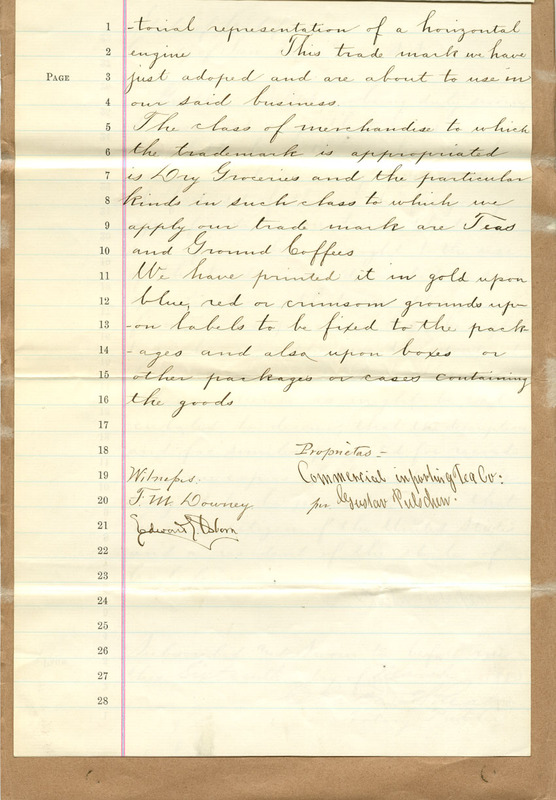 1 -torial representation of a horizontal
2 engine This trade mark we have
PAGE 3 just adoped and are about to use in
4 our said business.
5 The class of merchandise to which
6 the trademark is appropriated
7 is Dry Groceries and the particular
8 kinds in such class to which we
9 apply our trade mark are Teas
10 and Ground Coffees
11 We have printed it in gold upon
12 blue, red or crimsom grounds up-
13 -on labels to be fixed to the pack-
14 -ages and also upon boxes or
15 other packages or cases containing
16 the goods
17
18 Proprietas -
19 Witnesses. Commercial importing Tea Co:
20 T. M. Downey per Gustav
21 Edward Osborn
22
23
24
25
26
27
28